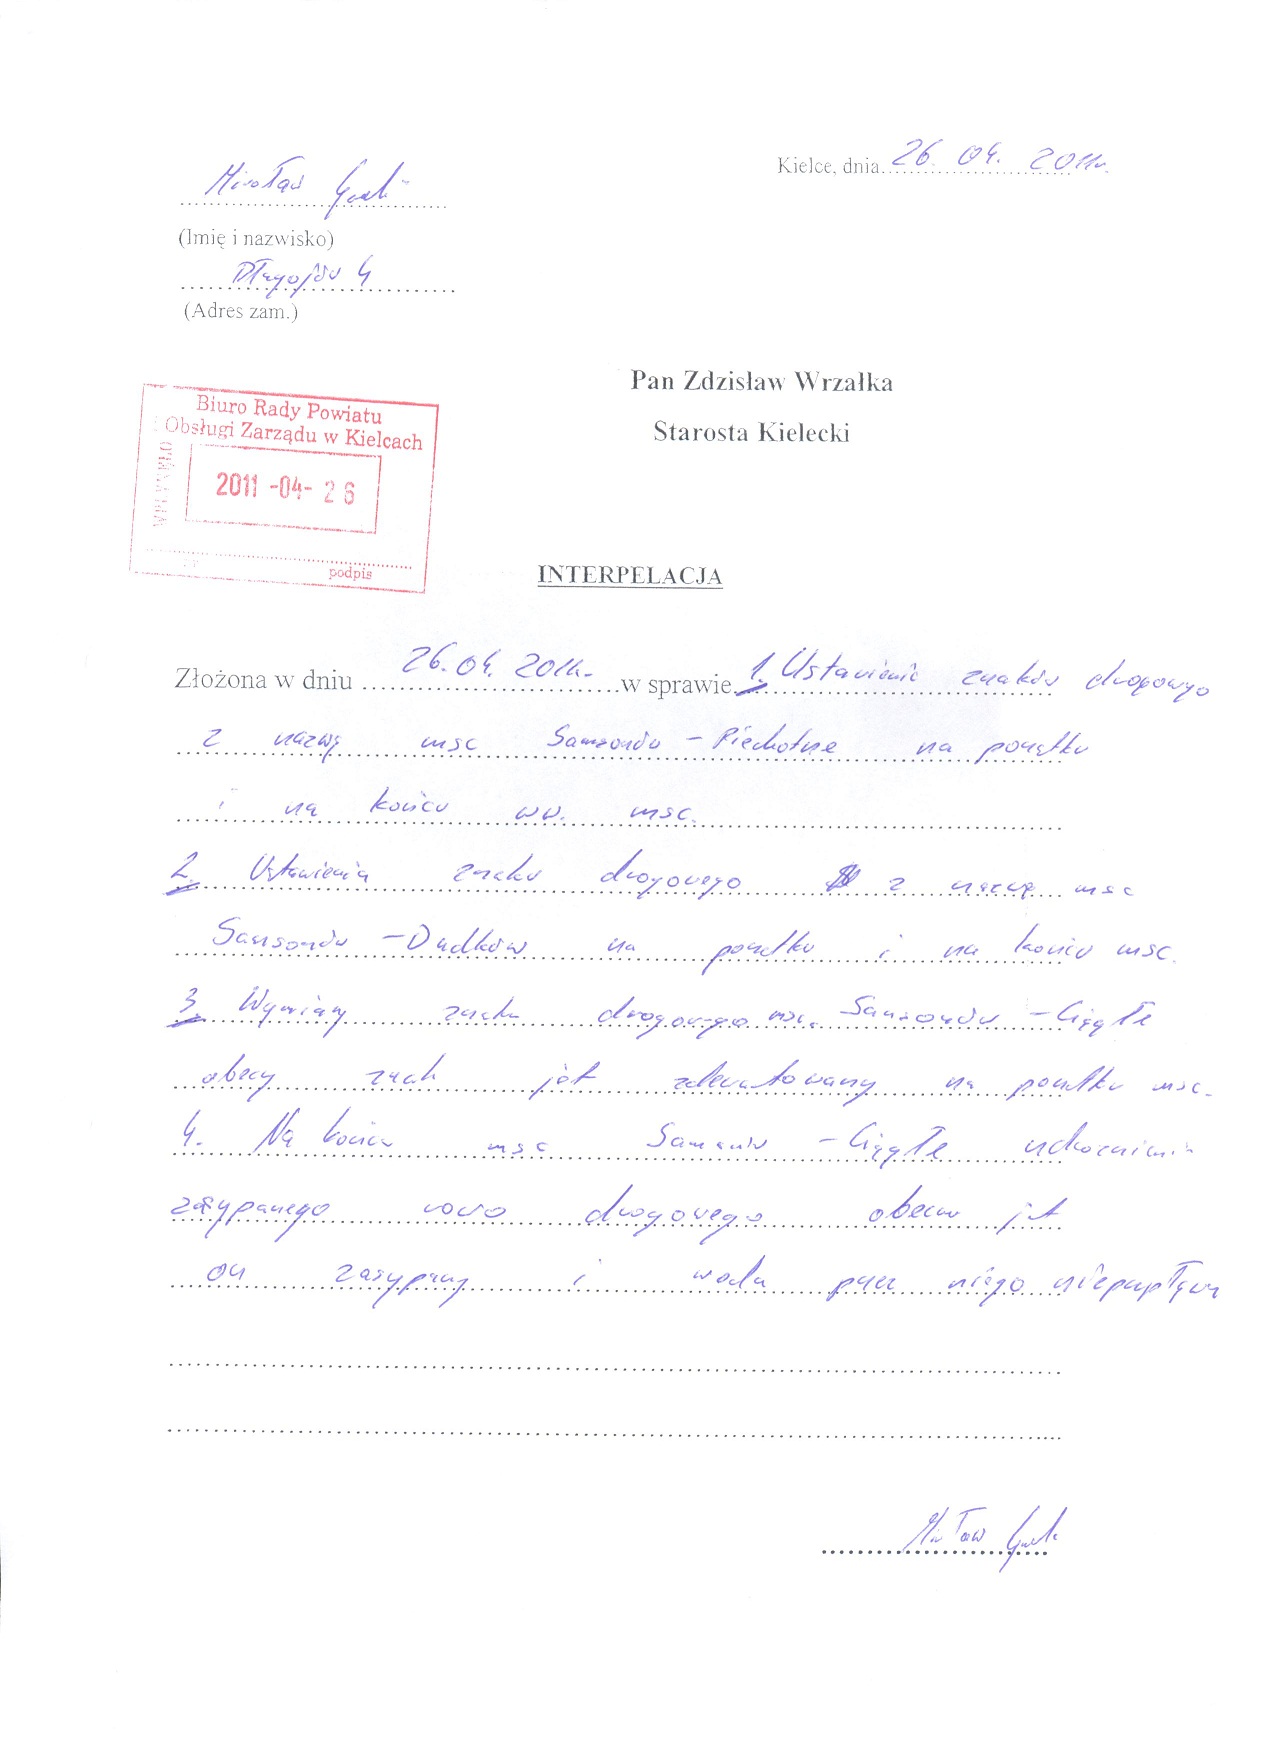 Kielce, dnia 26. 04. 2011r.
Mirosław Gę
(Imię i nazwisko)
Długojów 4
(Adres zam.)
Pan Zdzisław Wrzałka
Starosta Kielecki
Biuro Rady Powiatu
Obsługi Zarządu w Kielcach
2011 -04- 26
podpis
INTERPELACJA
Złożona w dniu 26.04. 2011r. w sprawie 1. Ustawienie znaków drogowego
z nazwą msc Samsonów - Piechotne na początku
i na końcu ww. msc.
2. Ustawienia znaku drogowego z nazwą msc
Samsonów - Dudków na początku i na końcu msc.
3. Wymiany znaku drogowego msc. Samsonów - Ciągłe
obecny znak jest zdewastowany na początku msc.
4. Na końcu msc Samsonów - Ciągłe udrożnienia
zasypanego rowo drogowego obecnie jest
on zasypany i woda przez niego nieprzepływa
Mirosław